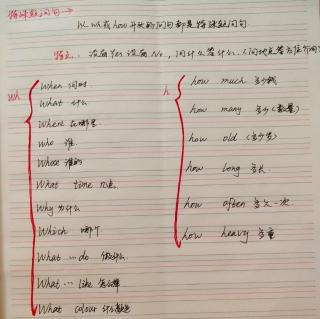 特殊疑问句→
以 wh或how 开放的问句都是特殊疑问句.
特点: 没有Yes 没有No, 问什么答什么.
wh
When 何时
What 什么
Where 在哪里
who 谁
Whose 谁的
What time 几点
Why 为什么
Which 哪个
What ... do 做什么
What ... like 怎么样
What colour 什么颜色
h
how much 多少钱
how many 多少 (数量)
how old (多少岁)
how long 多长
how often 多久一次
how heavy 多重